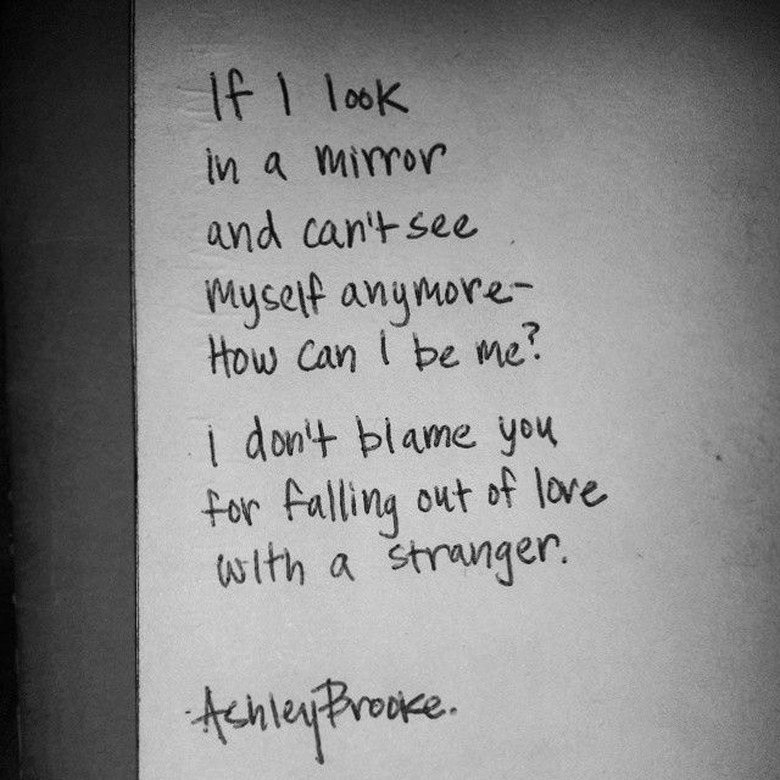 If I look
in a mirror
and can't see
myself anymore-
How can I be me?
i don't blame you
for falling out of love
with a stranger.
-AshleyBrooke.